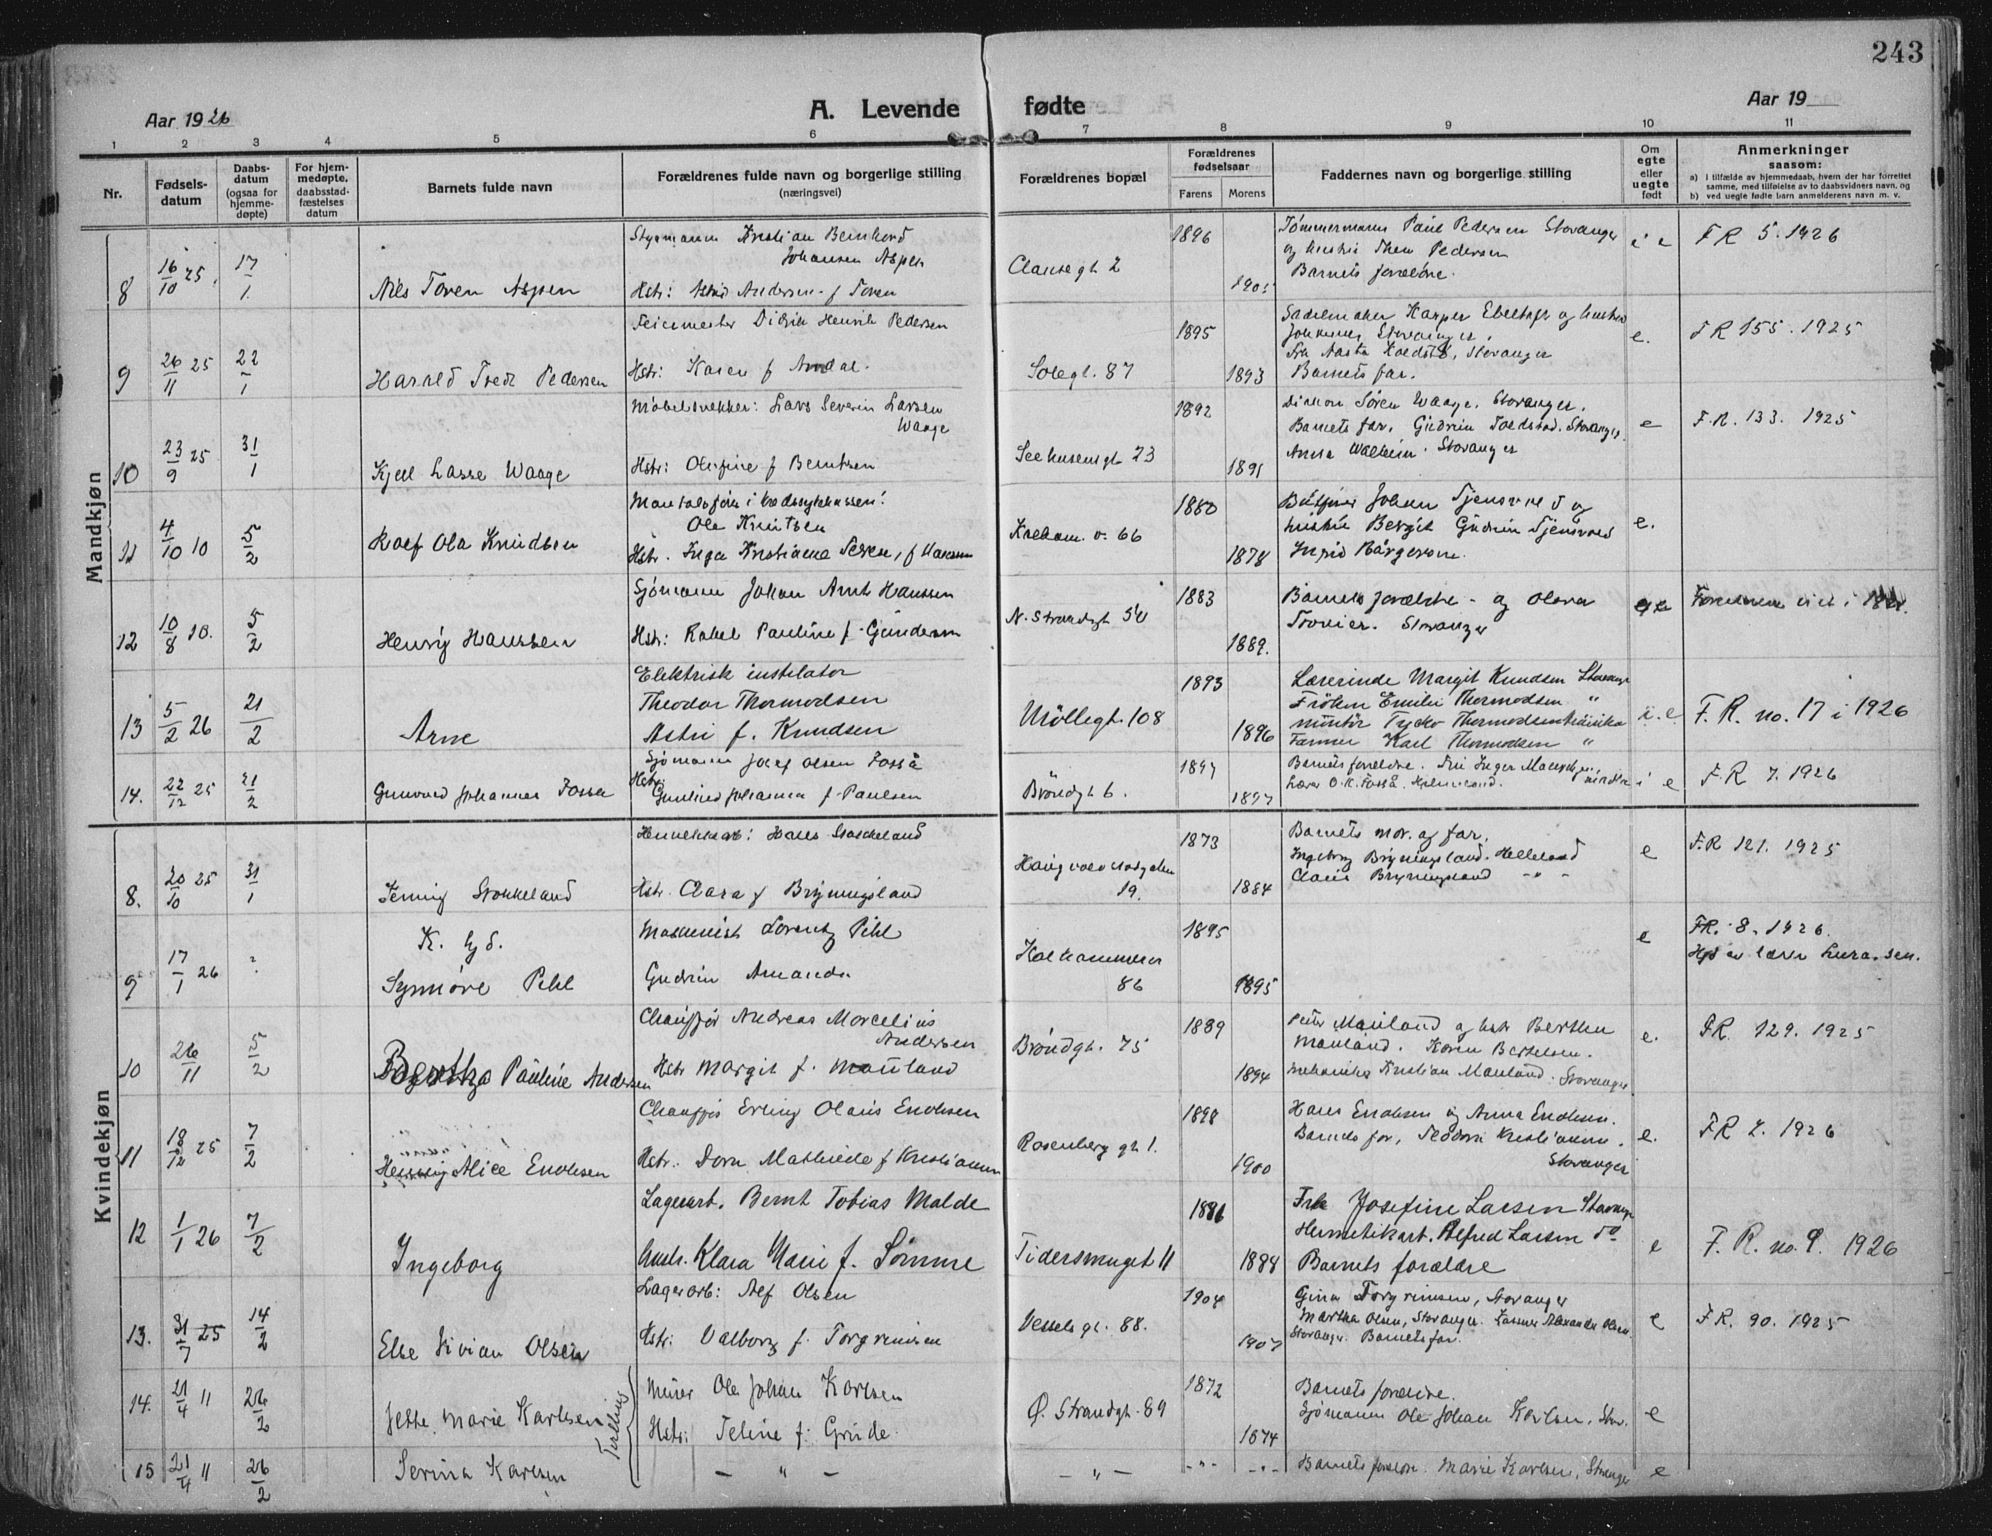 243
Aar 1926
A. Levende fødte
Aar 19
1 2 3 4 5 6 7 8 9 10 11
Nr.
Fødsels-
datum
Daabs-
datum
(ogsaa for
hjemme-
døpte)
For hjem-
medøpte,
daabsstad-
fæstelses
datum
Barnets fulde navn
Forældrenes fulde navn og borgerlige stilling
(næringsvei)
Forældrenes bopæl
Forældrenes
fødselsaar
Farens Morens
Faddernes navn og borgerlige stilling
Om
egte
eller
uegte
født
Anmerkninger
saasom:
a) I tilfælde av hjemmedaab, hvem der har forrettet
samme, med tilføielse av to daabsvidners navn, og
b) ved uegte fødte barn anmelderens navn m. v.
Mandkjøn
Styrmann Kristian Bernhard
Johansen Aspen
8 16/10 25. 17/1. Nils Toren Aspen
Hstr: Astrid Andersen f Toren
Clausegt 2
1896
1905
Tømmermann Paul Pedersen Stavanger
og hustru Thea Pedersen
Barnets forældre.
e
FR 5. 1926
Feiermester Didrik Henrik Pedersen
9 26/11 25 22/1 Harald Fredr Pedersen
Hstr: Karen f Årdal.
Solegt. 87
1895
1893
Sadelmaker Kasper og hustru
Stavanger,
Frk Aasta Stavanger
Barnets far.
e.
FR 155. 1925
Møbelsnekker: Lars Severin Larsen
Waage
10 23/9 25 31/1 Kjell Lasse Waage
Hstr: Olufine f Berntsen
Seehusensgt 23
1892
1891
Diakon Søren Waage, Stavanger.
Barnets far, Gudrun Stavanger.
Anna Stavanger
e
F.R. 133. 1925
Ole Knutsen
11 4/10 10 5/2 Rolf Ola Knudsen
Hstr. Inga Kristiane f Hansen
66
1880
1878
Johan Tjensvold og
hustru Bergit Gudrun Tjensvold
Ingrid
e.
Sjømann Johan Arnt Hanssen
12 10/8 10. 5/2 Henrÿ Hanssen
Hstr: Rakel Pauline f. Gundersen
N. Strandgt 54
1883
1889.
Barnets forældre - og Olava
Stavanger
Elektrisk instalatør
Theodor Thormodsen
13 5/2 26 21/2 Arne
Astri f. Knudsen
Møllegt. 108
1893
1896
Lærerinde Margit Knudsen Stavanger
Frøken Emilie Thormodsen "
Montør Tycho Thormodsen Amerika
Farmer Karl Thormodsen "
e
F. R. no. 17 i 1926
Sjømann Josef Olsen Fosså
Hstr:
14. 22/12 25 21/2 Gunvald Johannes Fossa
Gunhild Johanna f Paulsen
Brøndgt 6.
1897
1897
Barnets forældre. Fru Inger
Lærer O. K. Fosså.
e
F. R 7. 1926
Kvindekjøn
8. 20/10 25 31/1 Jenny Stokkeland
Hstr. Clara f Brynnigsland
19.
1873
1884
Barnets mor. og far.
Ingeborg Brynnigsland. Helleland
Brynnigsland
e
F.R 121. 1925
K. H S.
Maskinist Lorentz Pihl
9 17/1 26 ? Synnøve Pihl
Gudrun Amanda
86
1895
1895
e
FR. 8. 1926.
Chauffør Andreas Marcelius
Andersen
10 26/11 5/2 Bertha Pauline Andersen
Hstr Margit f. Mauland
Brøndgt. 75
1889
1894
Peter Mauland og hstr Berthea
Mauland. Karen Bertelsen.
Mekaniker Kristian Mauland. Stavanger
e.
FR. 129. 1925
Chauffør Erling Olaus Enoksen
11 18/12 25 7/2 Alice Enoksen
Hstr. Dora Mathilde f Kristiansen
Rosenberg gt 1.
1898
1900
Hans Enoksen og Anna Enoksen.
Barnets far, Teodora Kristiansen.
Stavanger
e.
FR 7. 1926
Lagerarb. Bernt Tobias Malde
12 1/1 26 7/2 Ingeborg
Hustr. Klara Marie f. Sømme
Tidersmuget 11
1886
1888
Frk Josefine Larsen Stavanger
Hermetikarb. Alfred Larsen do
Barnets forældre
e
F. R. no. 9. 1926
Lagerarb: Alf Olsen
13. 31/7 25 14/2 Else Vivian Olsen
Hstr: Valborg f. Torgrimsen
Vesselsgt. 88.
1904
1907
Gina Torgrimsen, Stavanger
Martha Olsen, Stavanger. Alexander Olsen.
Stavanger. Barnets far.
e
F.R. 90. 1925
14. 21/4 11 26/2 Jette Marie Karlsen
Tvilling
Murer Ole Johan Karlsen
Hstr: Teline f: Grude
Ø. Strandgt. 89
1872
1874
Barnets forældre.
Sjømann Ole Johan Karlsen, Stav.
e
15 21/4 11 26/2 Serina Karlsen
— " —
— " —
Barnets forældre. Marie Karlsen, Stavanger
e